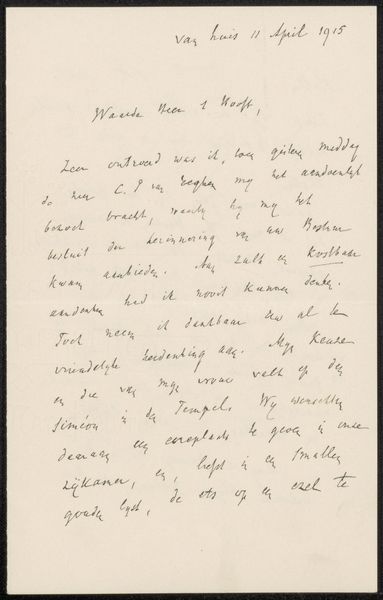 van huis 11 April 1915
Waarde Heer 't Hooft,
Zeer ontroerd was ik, toen gisteren middag
de heer C. P. van Eeghen mij het aandoenlijk
bezoek bracht, waarbij hij mij het
besluit der herinnering van uw Bestuur
kwam aanbieden. Aan zulk een kostbaar
aandenken had ik nooit kunnen denken.
Toch neem ik dankbaar uw al te
vriendelijke herdenking aan. Mijn keuze
en die van mijn vrouw valt op den
Siméon in den Tempel. Wij wenschten
daaraan een eereplaats te geven in onze
zijkamer, en, liefst in een smallen
gouden lijst, de ets op een ezel te